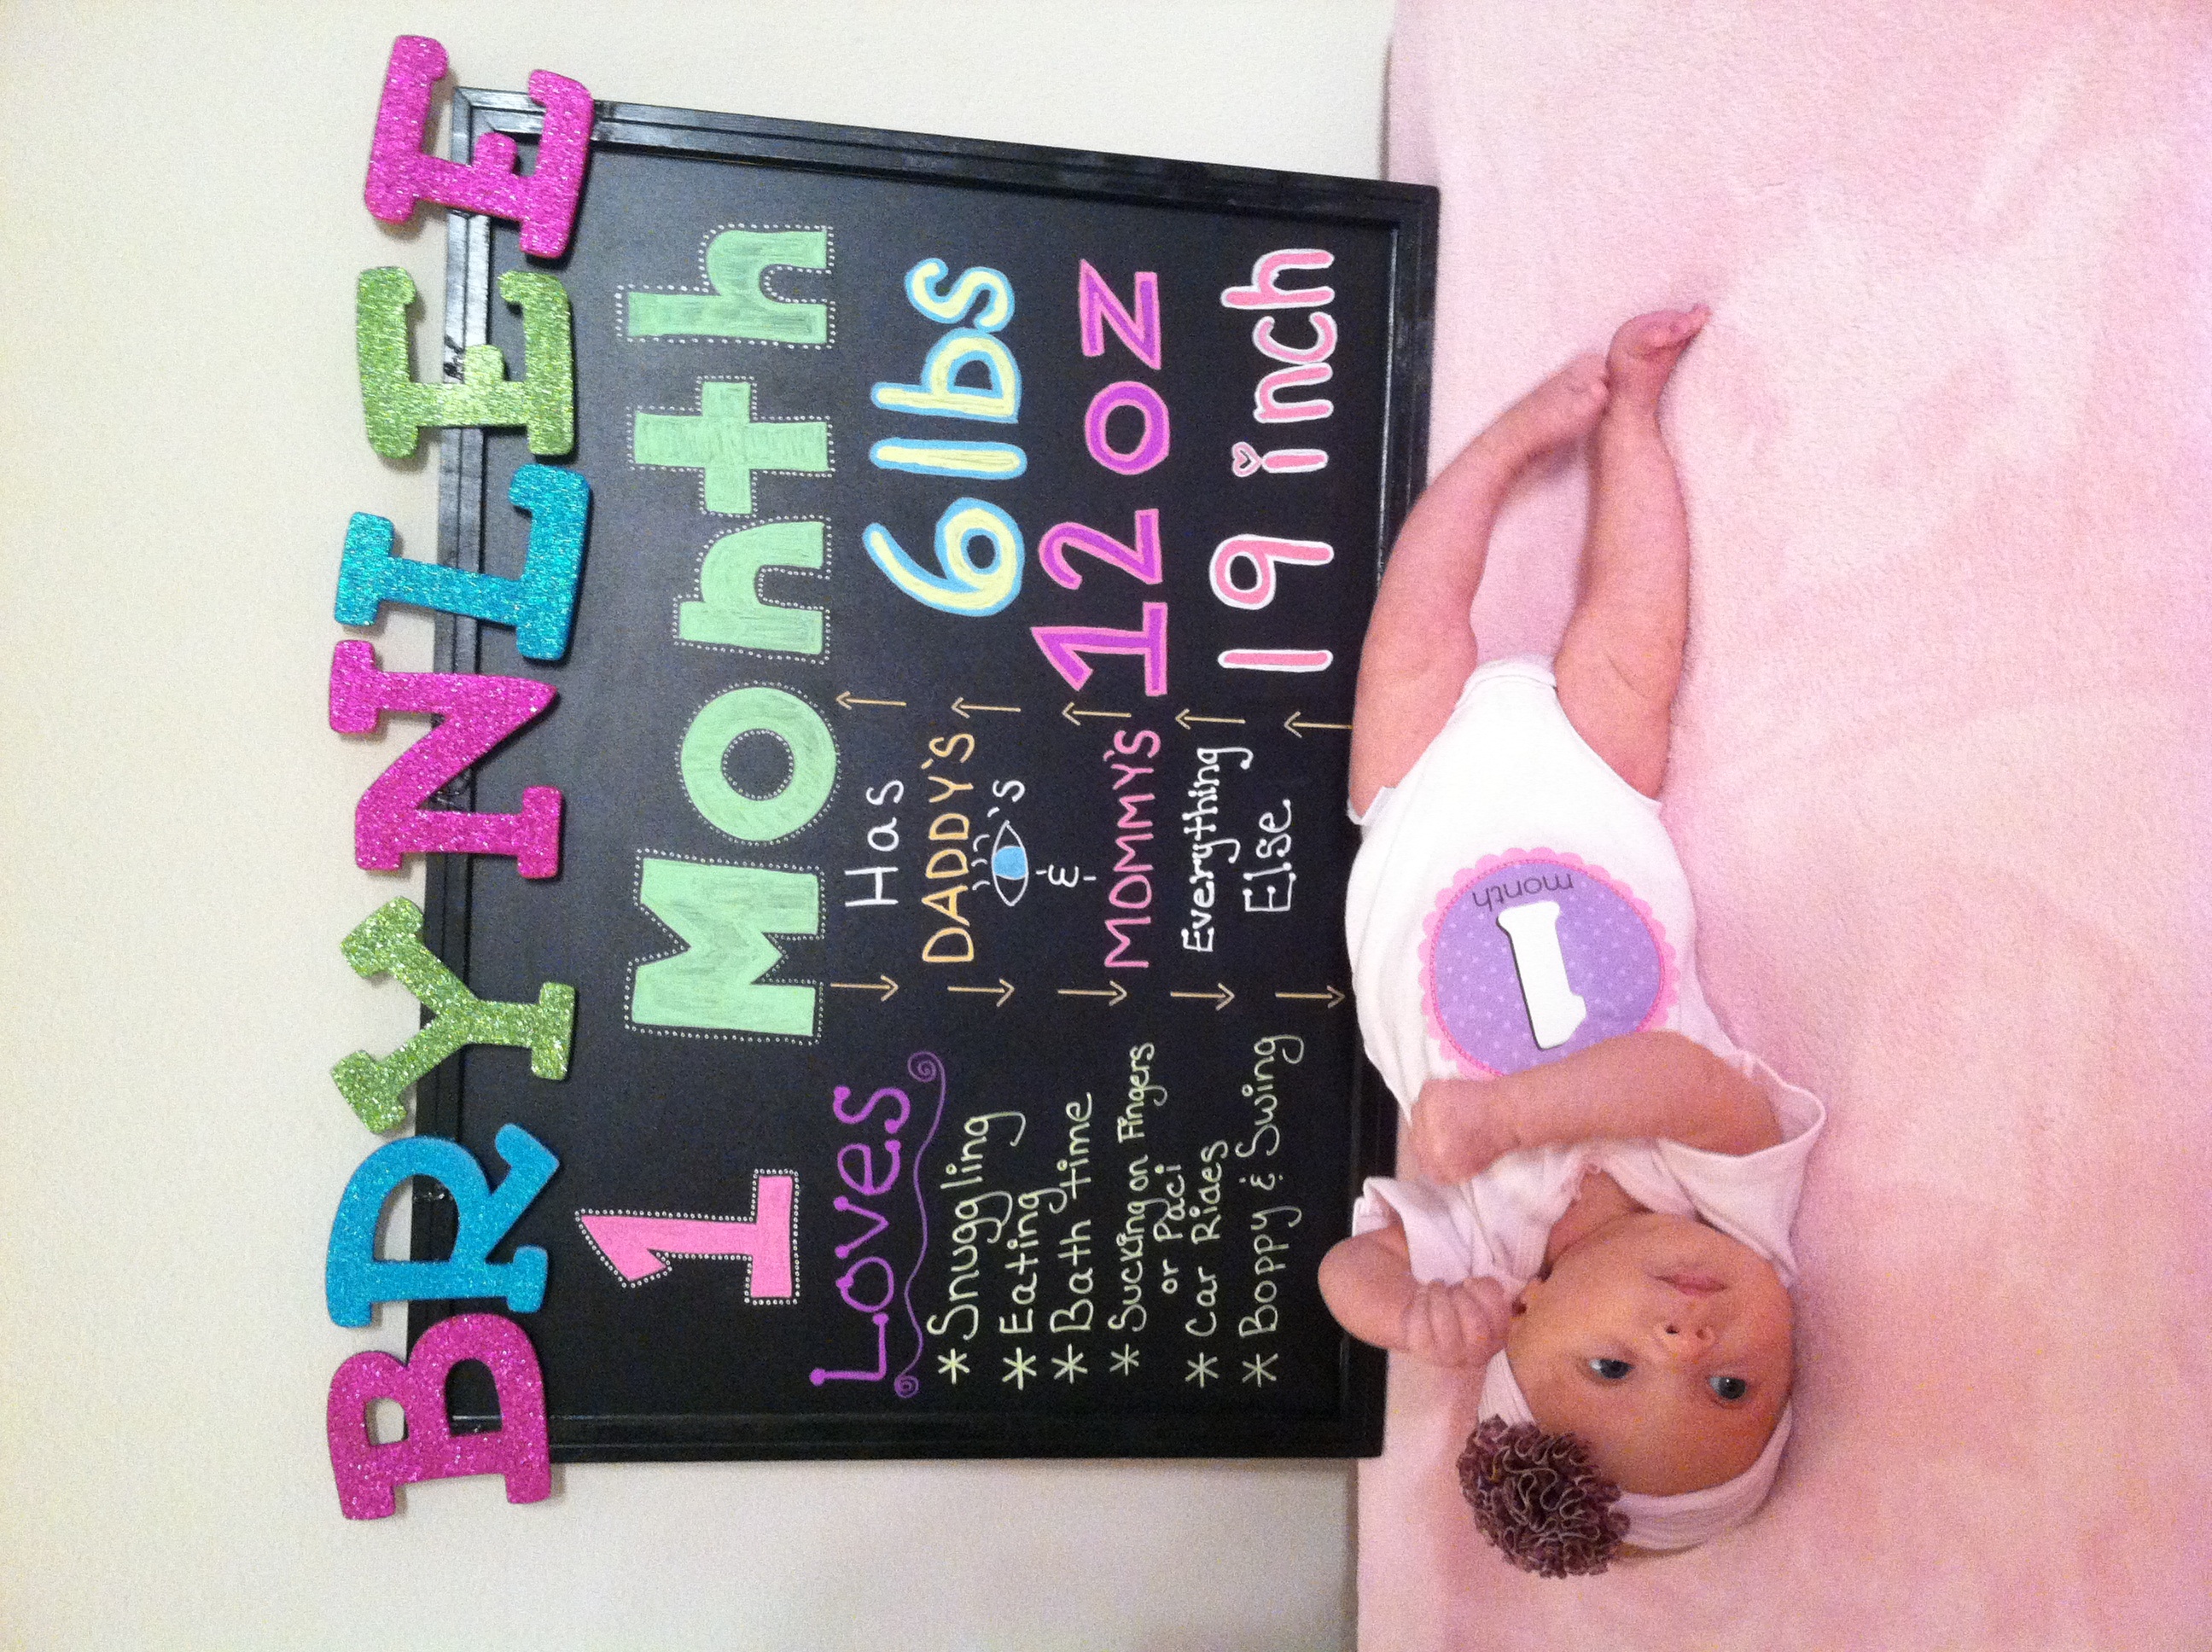 BRYNLEE
1 Month
Loves
* Snuggling
* Eating
* Bath time
* Sucking on Fingers
or Paci
* Car Rides
* Boppy & Swing
Has
DADDY'S
's
&
MOMMY'S
Everything
Else
6lbs
12 oz
19 inch
1
month